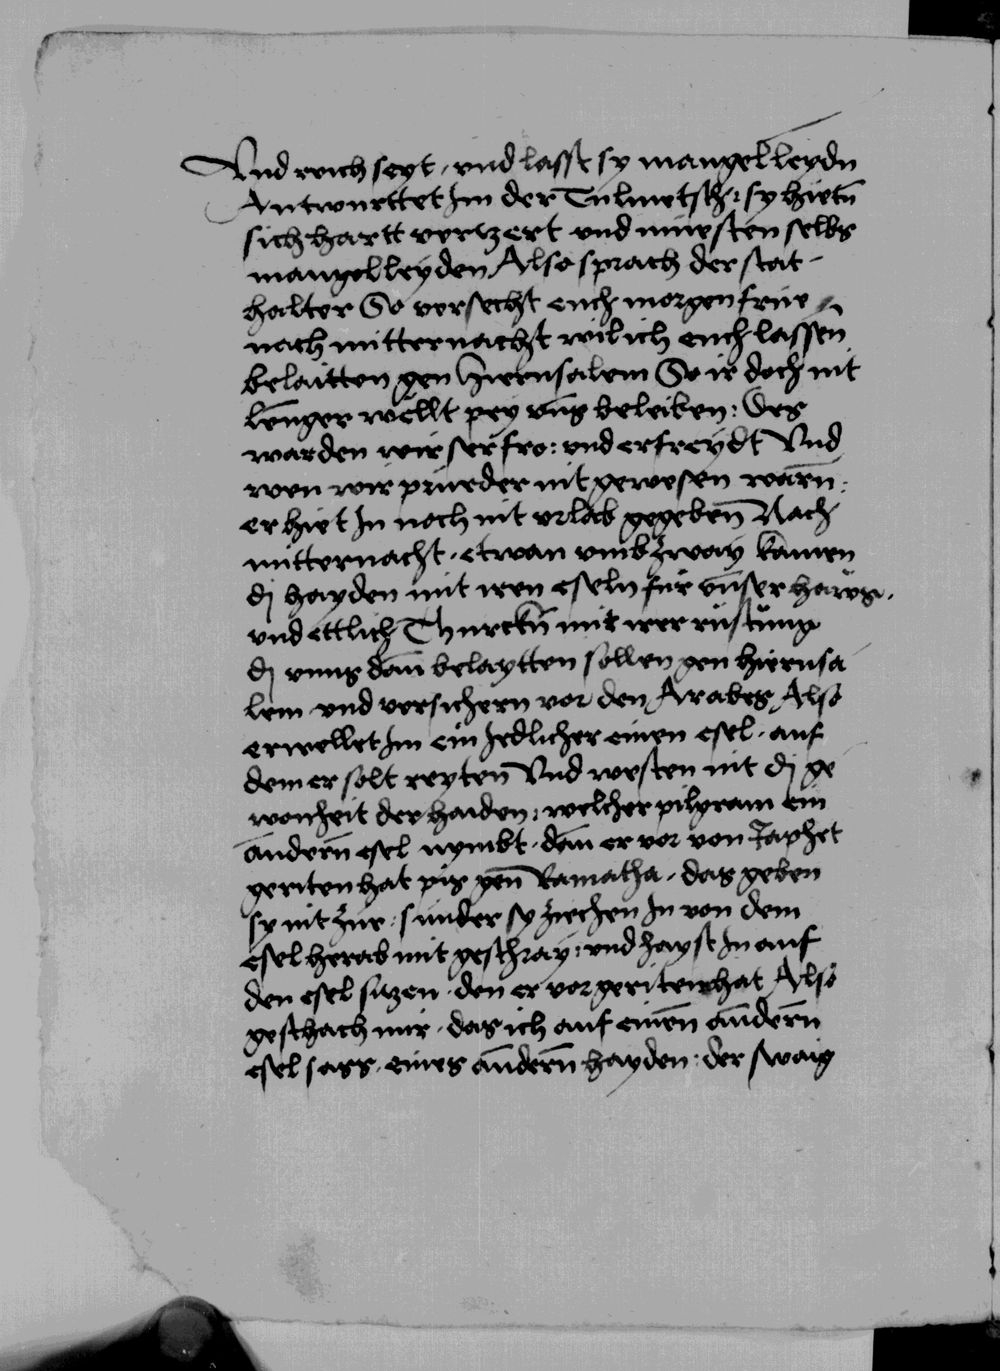 Vnd reich seyt · vnd lasst sy mangel leydn
Antwurttet Im der Tulmetsch : sy hietn̄
sich hartt vertzert vnd müesten selbs
mangel leyden Also sprach der stat-
halter So versecht euch morgen früe
nach mitternacht wil ich euch lassen̄
belaitten gen Hierusalem So ir doch nit
lenger wellt pey vn̄s beleiben : Des
warden wir ser fro : vnd erfreydt Vnd
wen wir prueder nit gewesen warn̄ :
er hiet In noch nit vrlab gegeben̄ Nach
mitternacht · etwan vmb zway kamen
dj hayden mit iren eseln für vn̄ser haws ·
vnd ettlich Thurckn̄ mit irer rüstung
dj vnns dan̄ belaytten sollen gen hierusa
lem vnd versichern vor den Arabes Also
erwellet Im ein Iedlicher einen esel · auf
dem er solt reyten̄ Vnd westen nit dj ge
wonheit der haiden : welcher pilgram ein
andern̄ esel nymbt · dan̄ er vor von Japhet
geriten hat pis gen̄ Ramatha · das geben
sy nit zue · sunder sy ziechen In von dem
esel herab mit geschray : vnd hayst In auf
den esel sitzen · den er vor geriten hat Also
geschach mir · das ich auf einen̄ an̄dern̄
esel sass · eines an̄dern̄ hayden : der swaig